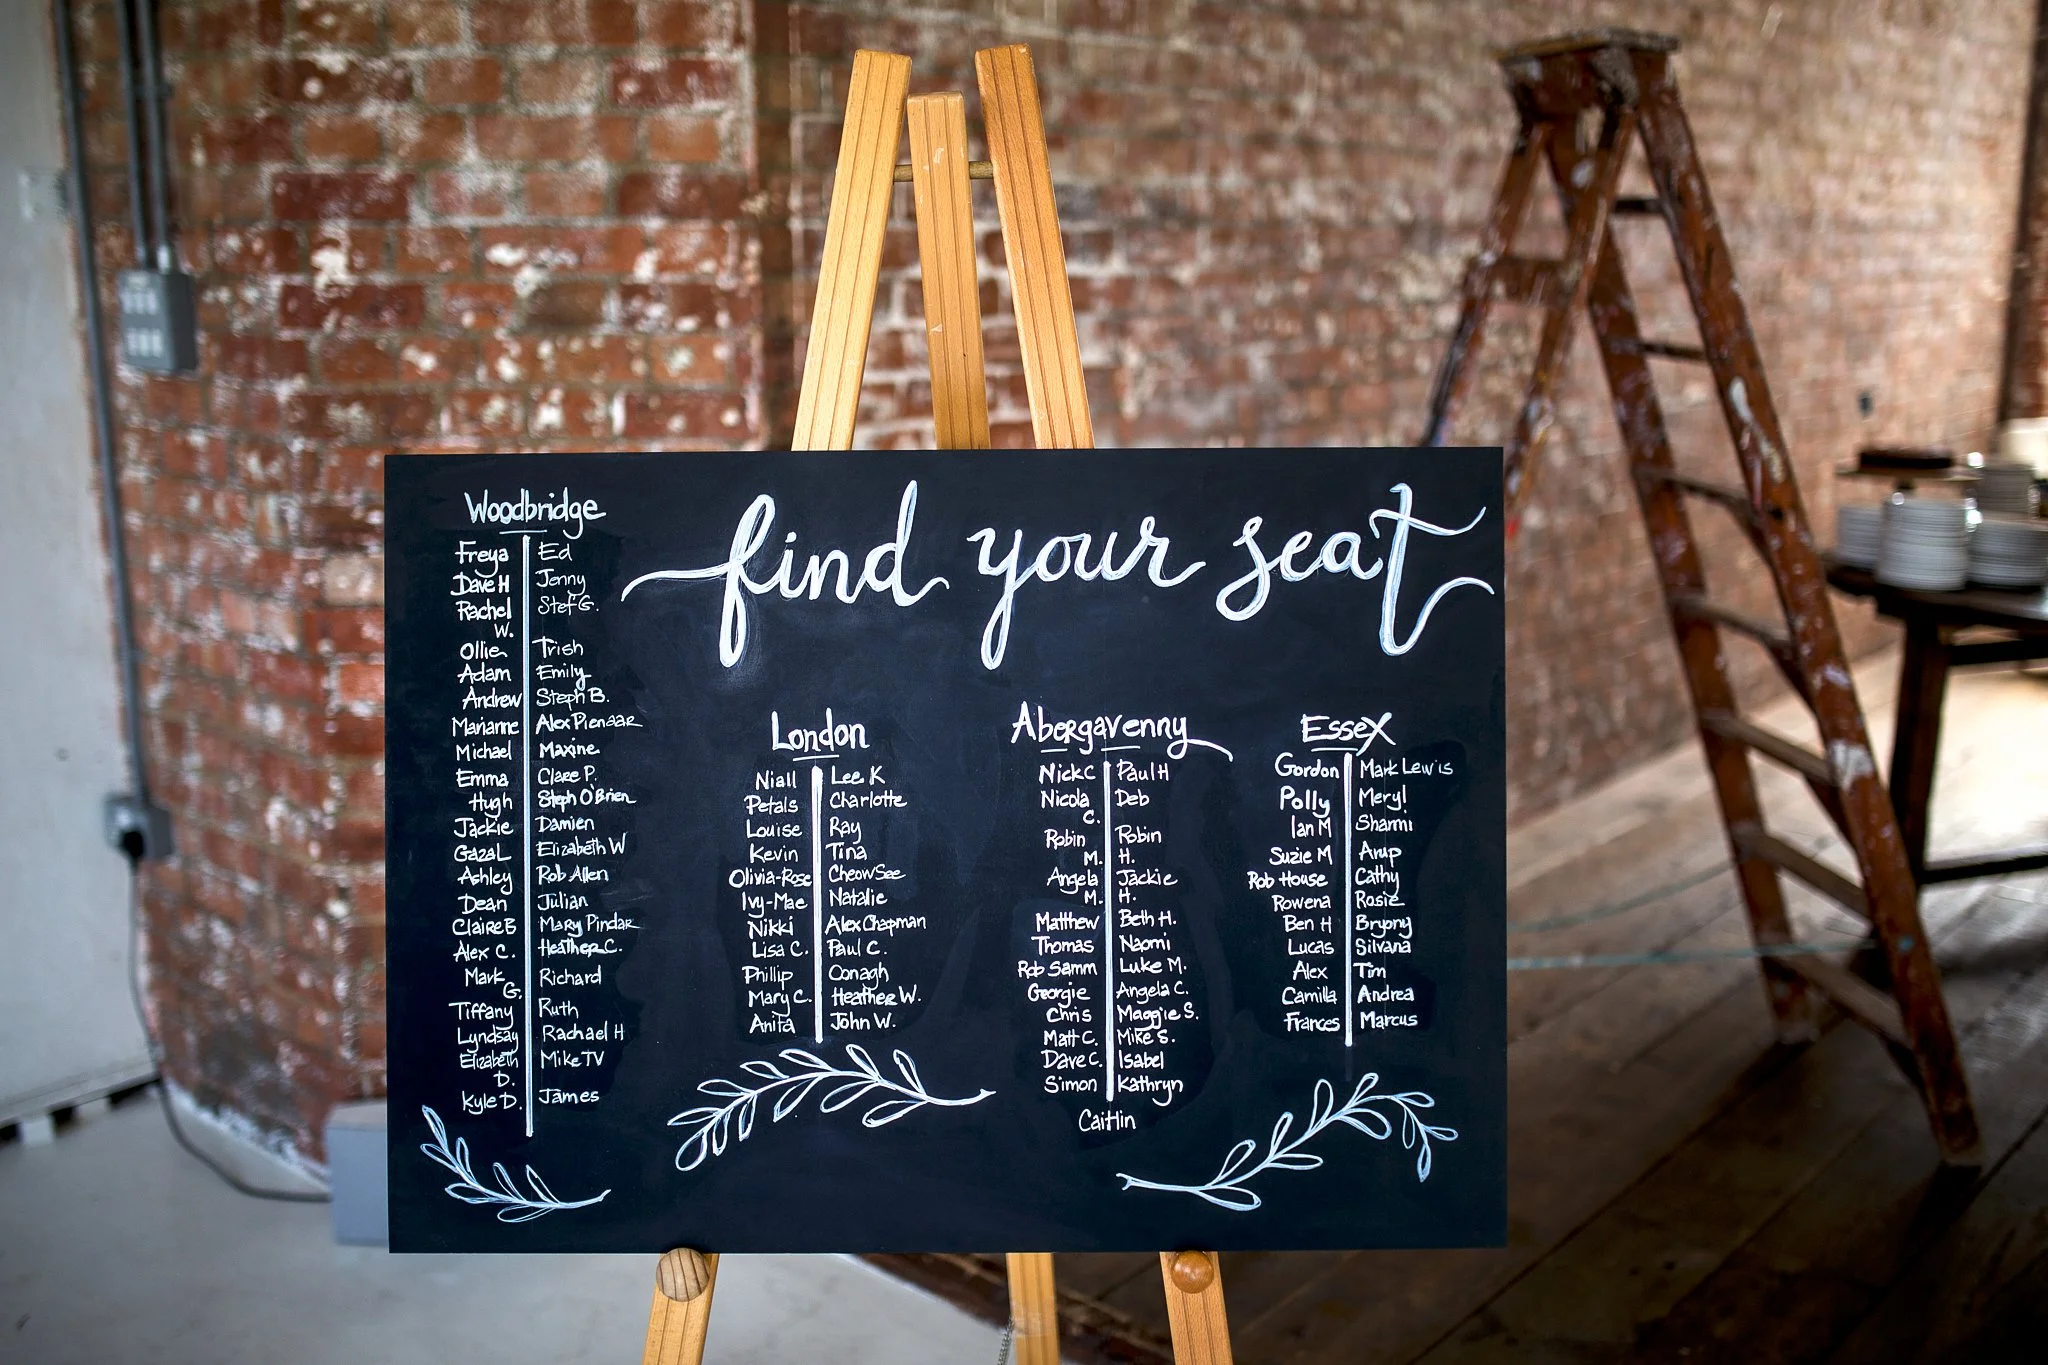 find your seat
Woodbridge
Freya
Dave H
Rachel
W.
Ollie
Adam
Andrew
Marianne
Michael
Emma
Hugh
Jackie
Gazal
Ashley
Dean
Claire B
Alex C.
Mark
G.
Tiffany
Lyndsay
Elizabeth
D.
Kyle D.
Ed
Jenny
Stef G.
Trish
Emily
Steph B.
Alex Pienaar
Maxine
Clare P.
Steph O'Brien
Damien
Elizabeth W
Rob Allen
Julian
Mary Pindar
Heather C.
Richard
Ruth
Rachael H
Mike TV
James
London
Niall
Petals
Louise
Kevin
Olivia-Rose
Ivy-Mae
Nikki
Lisa C.
Phillip
Mary C.
Anita
Lee K
Charlotte
Ray
Tina
Cheow See
Natalie
Alex Chapman
Paul C.
Oonagh
Heather W.
John W.
Abergavenny
Nick C
Nicola
C.
Robin
M.
Angela
M.
Matthew
Thomas
Rob Samm
Georgie
Chris
Matt C.
Dave C.
Simon
Paul H
Deb
Robin
H.
Jackie
H.
Beth H.
Naomi
Luke M.
Angela C.
Maggie S.
Mike S.
Isabel
Kathryn
Caitlin
Essex
Gordon
Polly
Ian M
Suzie M
Rob House
Rowena
Ben H
Lucas
Alex
Camilla
Frances
Mark Lewis
Meryl
Sharmi
Arup
Cathy
Rosie
Bryony
Silvana
Tim
Andrea
Marcus